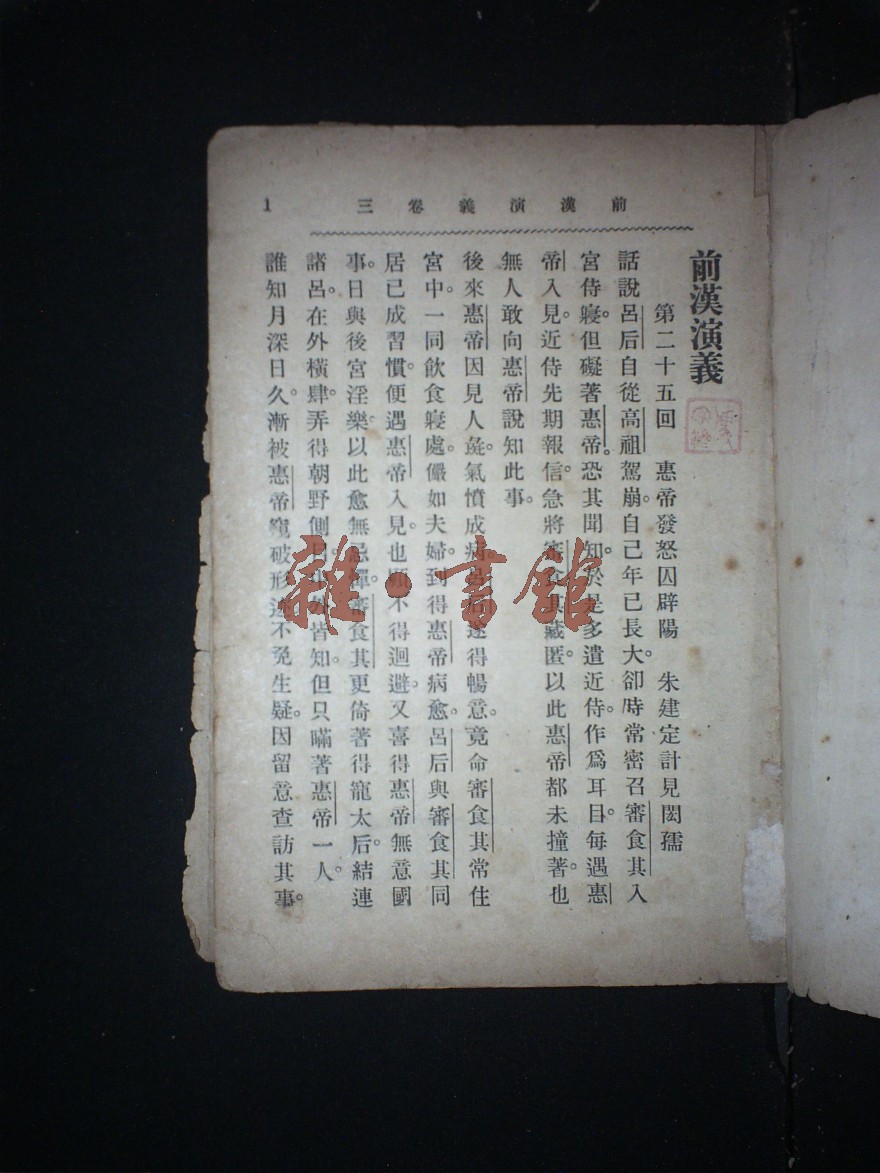 前漢演義卷三 1
前漢演義
第二十五回 惠帝發怒囚辟陽 朱建定計見閎孺
話說呂后自從高祖駕崩。自己年已長大。卻時常密召審食其入
宮侍寢。但礙著惠帝。恐其聞知。於是多遣近侍。作爲耳目。每遇惠
帝入見。近侍先期報信。急將審食其藏匿。以此惠帝都未撞著。也
無人敢向惠帝說知此事。
後來惠帝因見人彘。氣憤成病。呂后遂得暢意。竟命審食其常住
宮中。一同飲食寢處。儼如夫婦。到得惠帝病愈。呂后與審食其同
居已成習慣。便遇惠帝入見。也顧不得迴避。又喜得惠帝無意國
事。日與後宮淫樂。以此愈無忌憚。審食其更倚著得寵太后。結連
諸呂。在外橫肆。弄得朝野側目。中外皆知。但只瞞著惠帝一人。
誰知月深日久。漸被惠帝窺破形迹。不免生疑。因留意查訪其事。
雜·書館